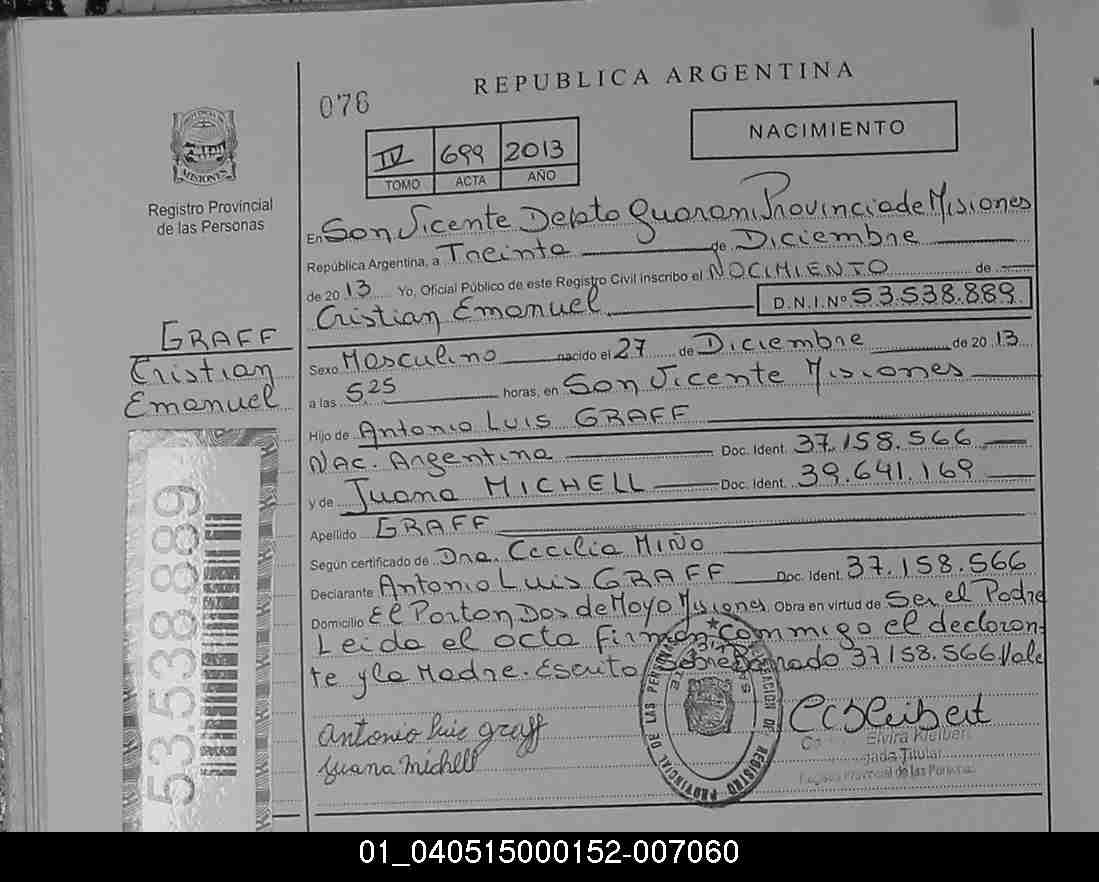 REPUBLICA ARGENTINA
076
NACIMIENTO
IV 699 2013
TOMO ACTA AÑO
MISIONES
Registro Provincial
de las Personas
En San Vicente Depto Guarani Provincia de Misiones
República Argentina, a Treinta de Diciembre
de 2013 Yo, Oficial Público de este Registro Civil inscribo el NACIMIENTO de
Cristian Emanuel D.N.I.Nº 53.538.889
GRAFF
Cristian
Emanuel
Sexo Masculino nacido el 27 de Diciembre de 2013
a las 5 25 horas, en San Vicente Misiones
Hijo de Antonio Luis GRAFF
Nac. Argentina Doc. Ident. 37.158.566
y de Juana MICHELL Doc. Ident. 39.641.169
Apellido GRAFF
Según certificado de Dra. Cecilia MIÑO
Declarante Antonio Luis GRAFF Doc. Ident. 37.158.566
Domicilio El Porton Dos de Mayo Misiones Obra en virtud de Ser el Padre
Leida el acta firman commigo el declaran-
te y la Madre. Escrito Sobre 37.158.566 Vale
53.538.889
Antonio Luis graff
Juana michell
Elvira Kleibert
Titular
Provincial de las Personas
REGISTRO PROVINCIAL DE LAS PERSONAS
01_040515000152-007060